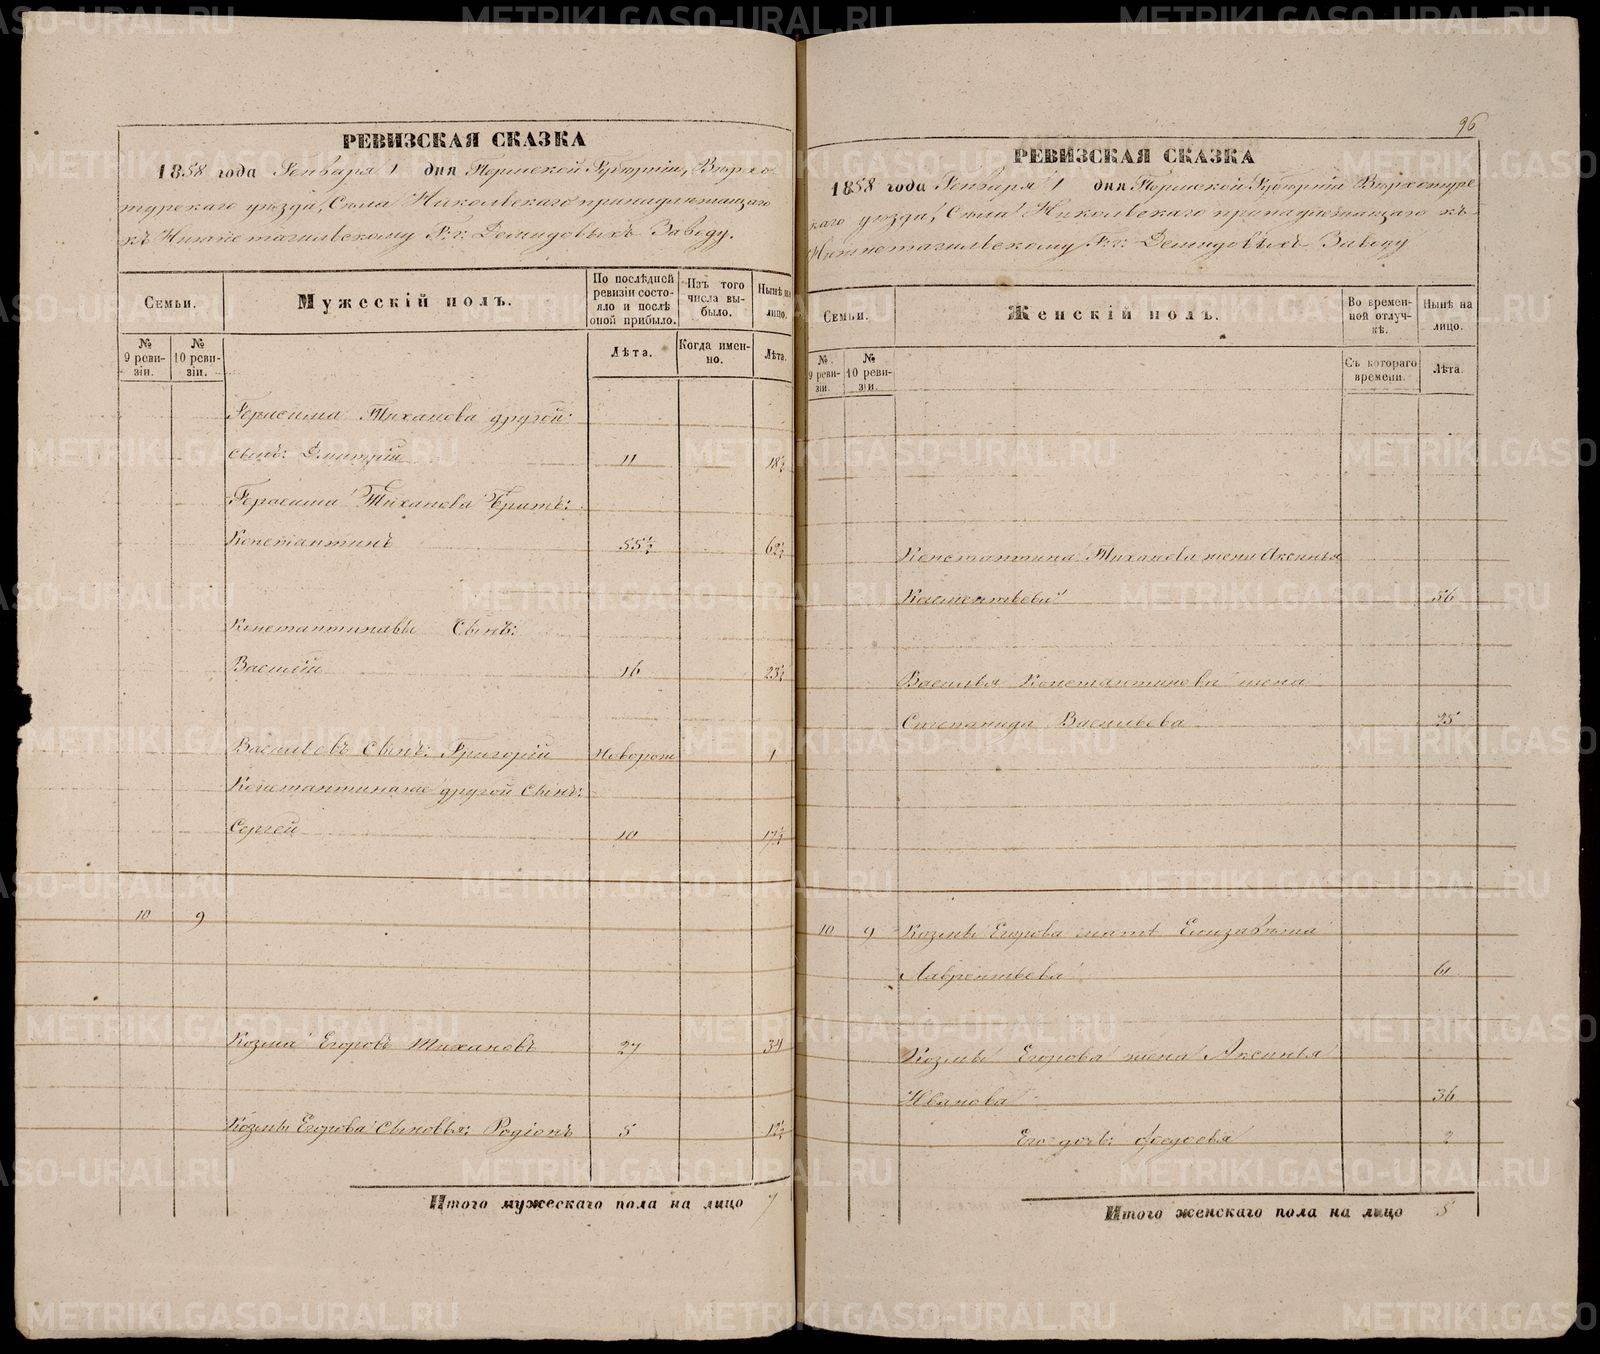 РЕВИЗСКАЯ СКАЗКА
1858 года Генваря 1 дня Пермской Губернии, Верхо
турскаго уезда, Села Никольскаго принадлежащаго
къ Нижнетагильскому Г.г. Демидовыхъ Заводу.
Семьи.
Мужескій полъ.
По послѣдней ревизіи состояло и послѣ оной прибыло.
Изъ того числа выбыло.
Нынѣ на лицо.
№ 9 ревизіи.
№ 10 ревизіи.
Лѣта.
Когда именно.
Лѣта.
Герасима Тиханова другой
сынъ: Дмитрій 11 18½
Герасима Тиханова братъ:
Константинъ 55½ 62½
Константиновы Сынъ:
Василій 16 23½
Васильевъ Сынъ: Григорій Новорож 1
Константинова другой Сынъ:
Сергей 10 17½
10 9
Козма Егоровъ Тихановъ 27 34
Козмы Егорова Сыновья: Родіонъ 5 12½
Итого мужескаго пола на лицо 7
96
РЕВИЗСКАЯ СКАЗКА
1858 года Генваря 1 дня Пермской Губерніи Верхотурс
каго уезда, Села Никольскаго принадлежащаго къ
Нижнетагильскому Г.г. Демидовыхъ Заводу
Семьи.
Женскій полъ.
Во временной отлучкѣ.
Нынѣ на лицо.
№ 9 ревизіи.
№ 10 ревизіи.
Съ котораго времени.
Лѣта.
Константина Тиханова жена Аксинья
56
Василья Константинова жена
Степанида Васильева 25
10 9 Козмы Егорова мать Елизавета
Лаврентьева 61
Козмы Егорова жена Аксинья
Иванова 36
Его дочь: Федосья 2
Итого женскаго пола на лицо 5
METRIKI.GASO-URAL.RU